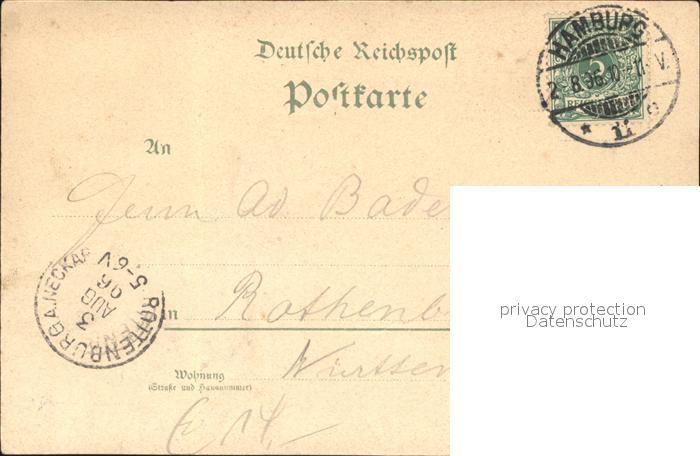 Deutsche Reichspost
Postkarte
HAMBURG
2. 8. 96.
V.
An
Herrn Ad. Bade
privacy protection
Datenschutz
ROTTENBURG A. NECKAR
3
AUG
96
5-6V
in
Rothenb
Wohnung
(Straße und Hausnummer)
Württem